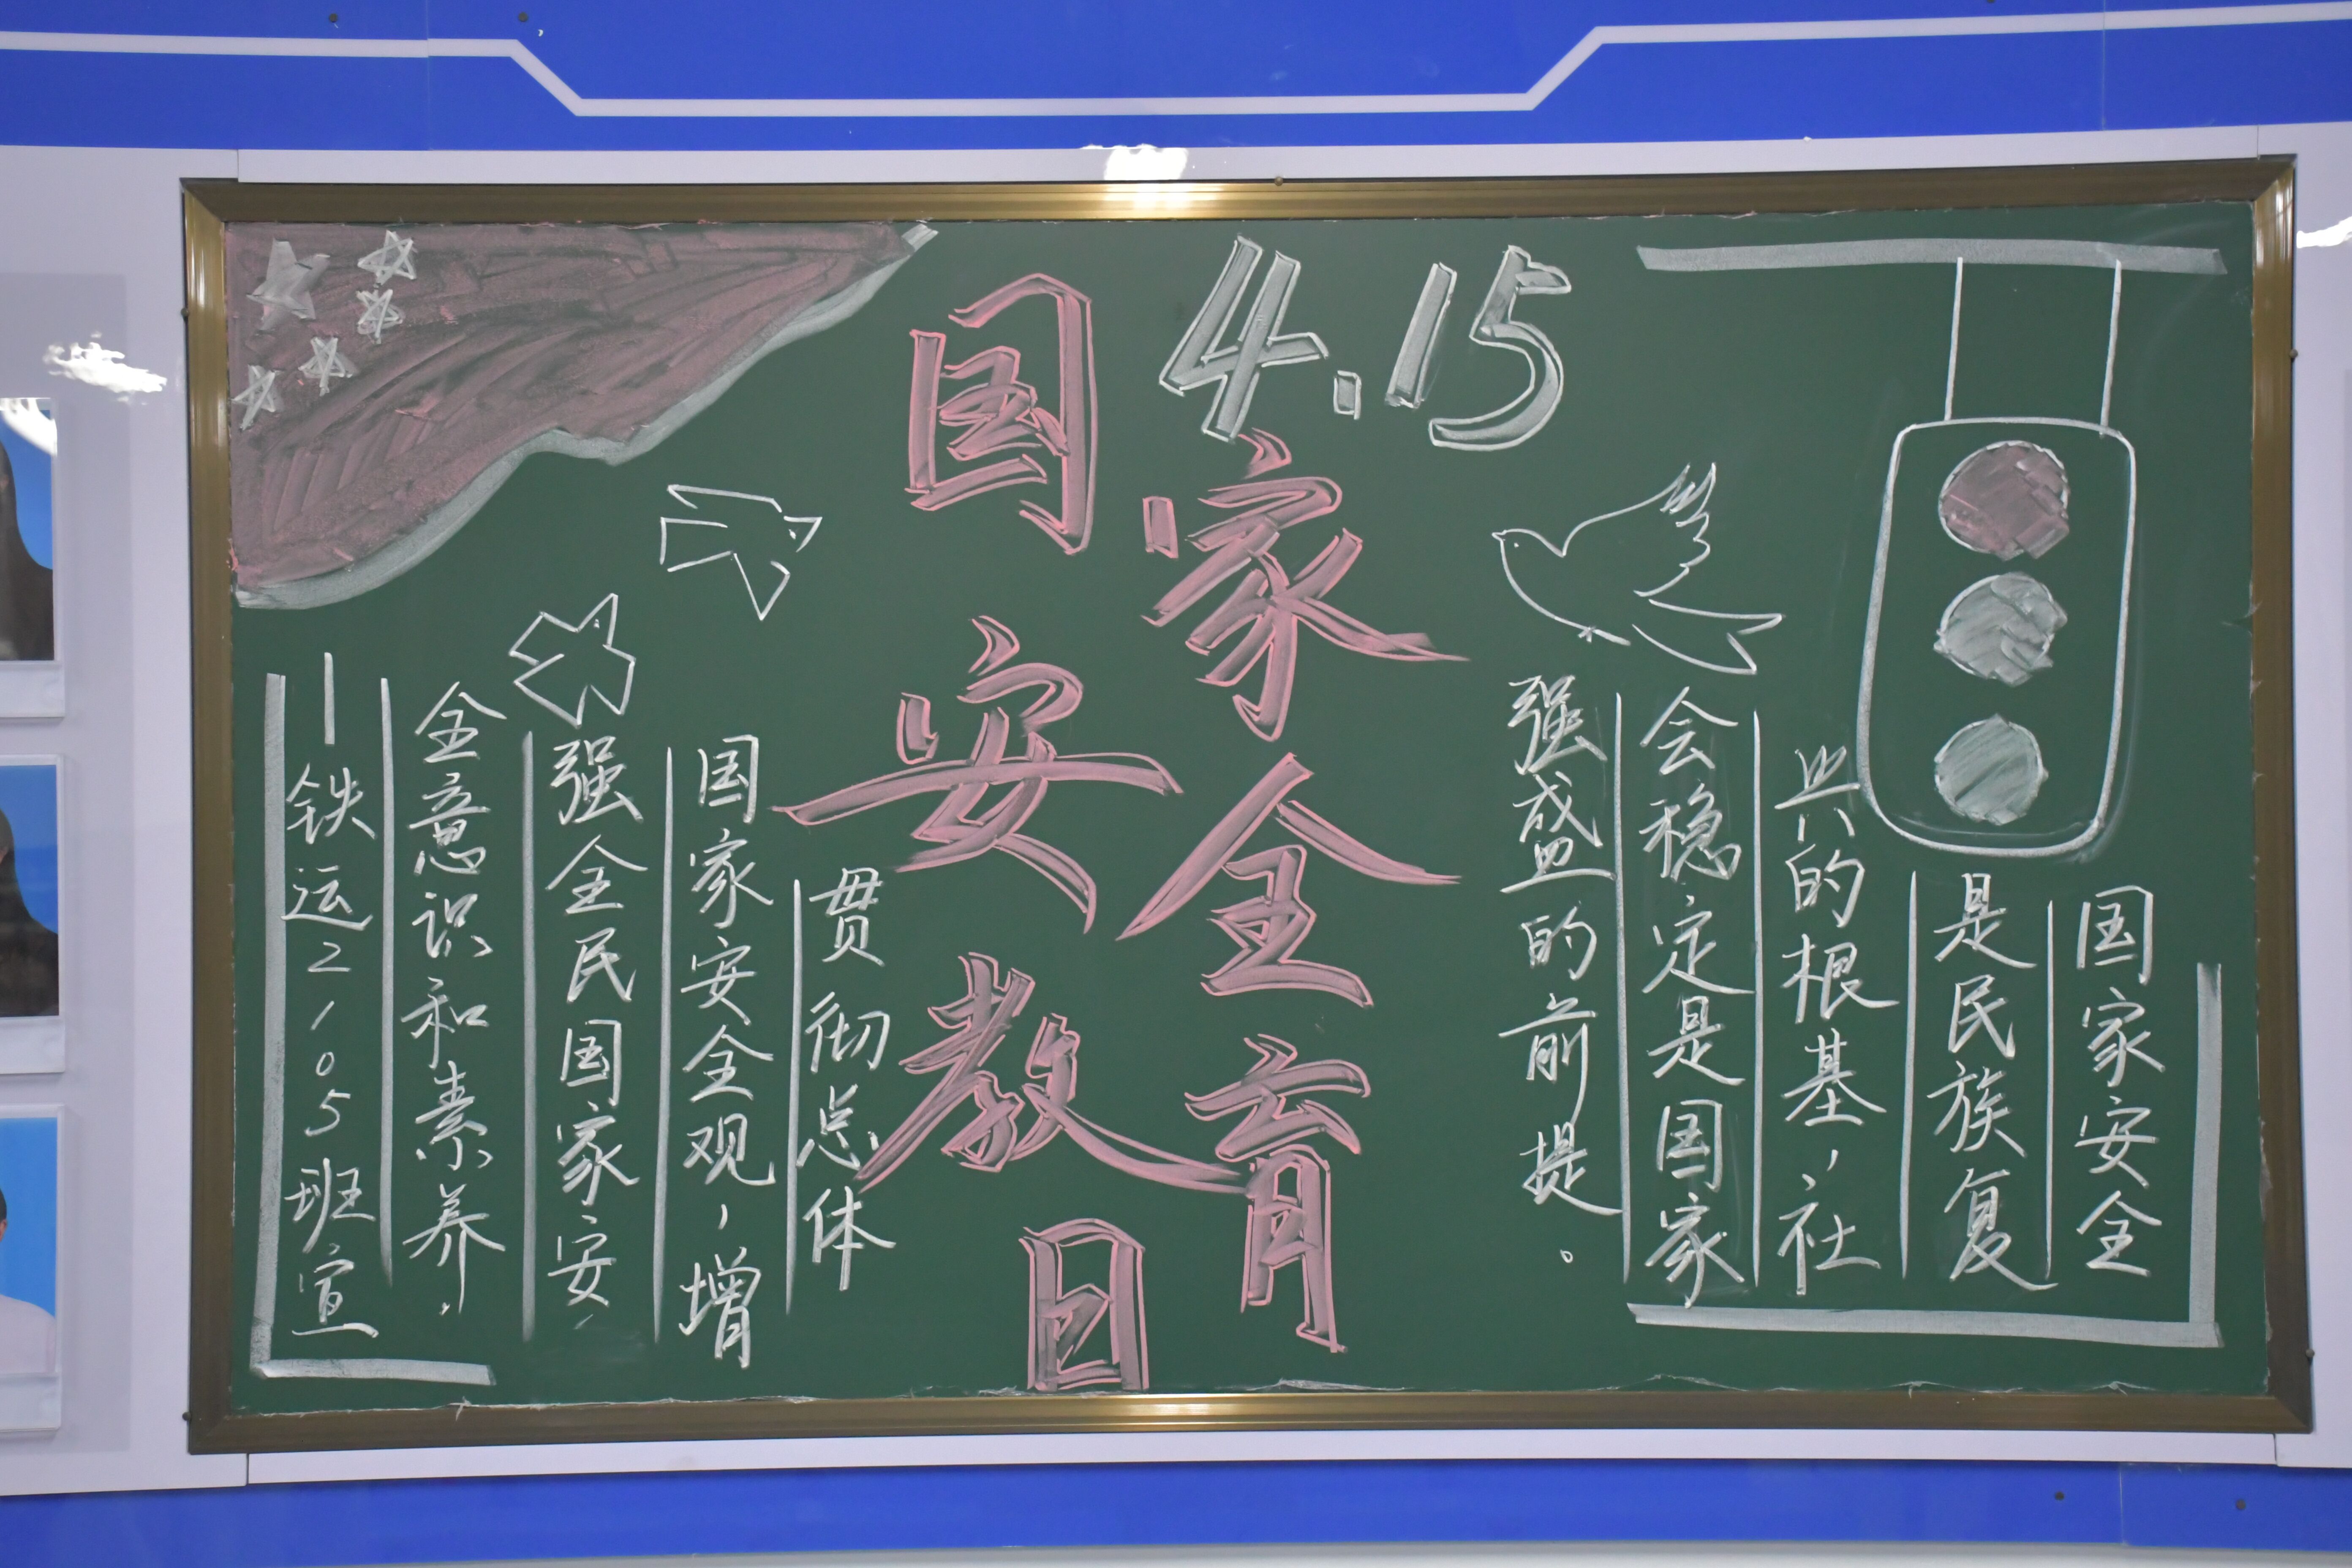 4.15
国家安全教育日
国家安全
是民族复
兴的根基，社
会稳定是国家
强盛的前提。
贯彻总体
国家安全观，增
强全民国家安
全意识和素养.
—铁运2105班宣